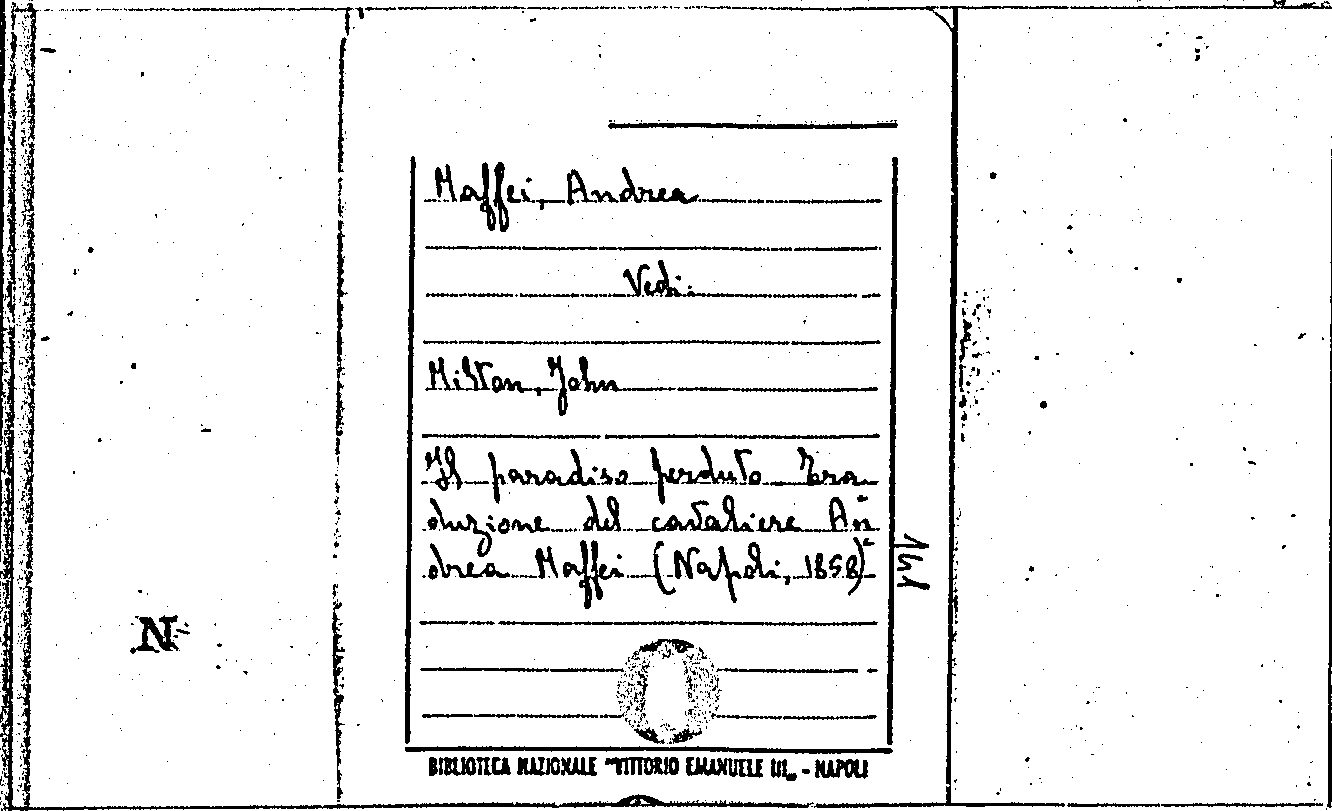 Maffei, Andrea
Vedi:
Milton, John
Il paradiso perduto Tra
duzione del cavaliere An
drea Maffei (Napoli, 1858)
N
BIBLIOTECA NAZIONALE "VITTORIO EMANUELE III„ - NAPOLI